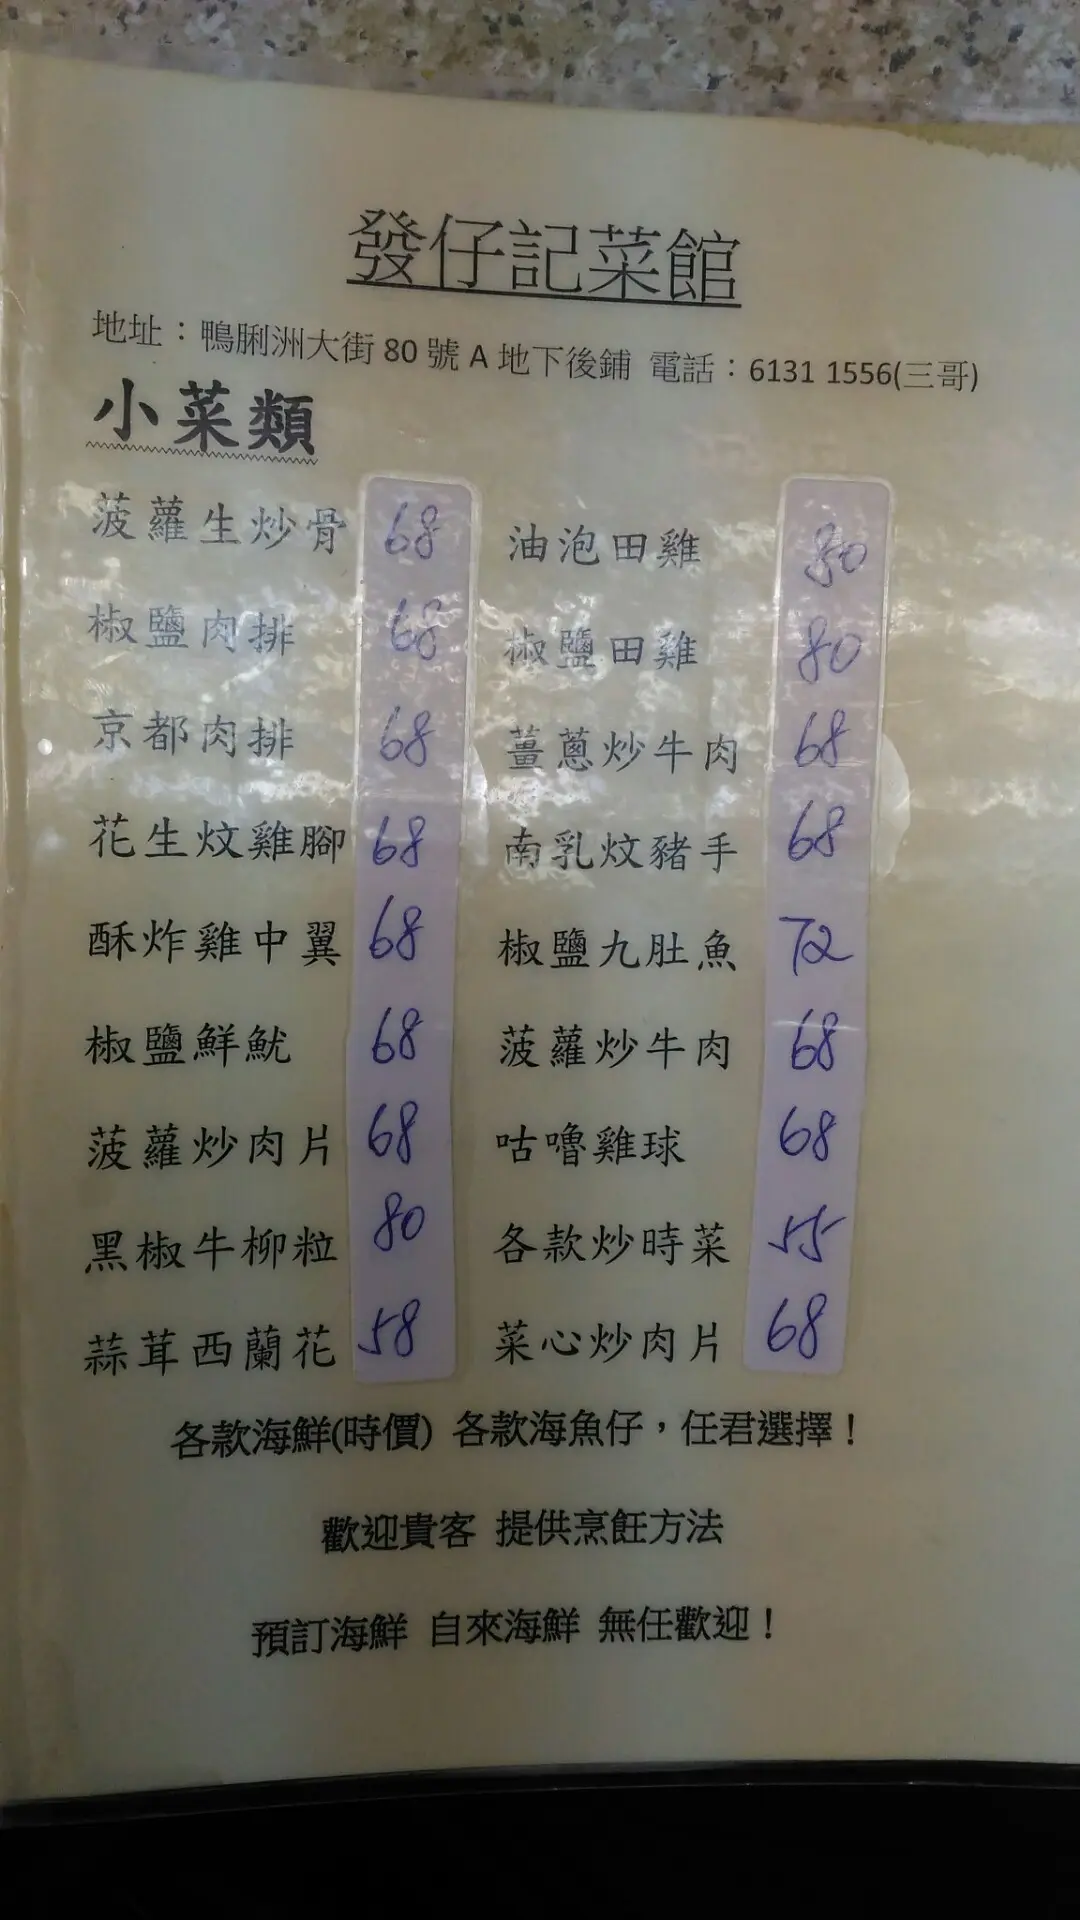 發仔記菜館
地址：鴨脷洲大街 80 號 A 地下後鋪 電話：6131 1556(三哥)
小菜類
菠蘿生炒骨 68 油泡田雞 80
椒鹽肉排 68 椒鹽田雞 80
京都肉排 68 薑蔥炒牛肉 68
花生炆雞腳 68 南乳炆豬手 68
酥炸雞中翼 68 椒鹽九肚魚 72
椒鹽鮮魷 68 菠蘿炒牛肉 68
菠蘿炒肉片 68 咕嚕雞球 68
黑椒牛柳粒 80 各款炒時菜 55
蒜茸西蘭花 58 菜心炒肉片 68
各款海鮮(時價) 各款海魚仔，任君選擇！
歡迎貴客 提供烹飪方法
預訂海鮮 自來海鮮 無任歡迎！